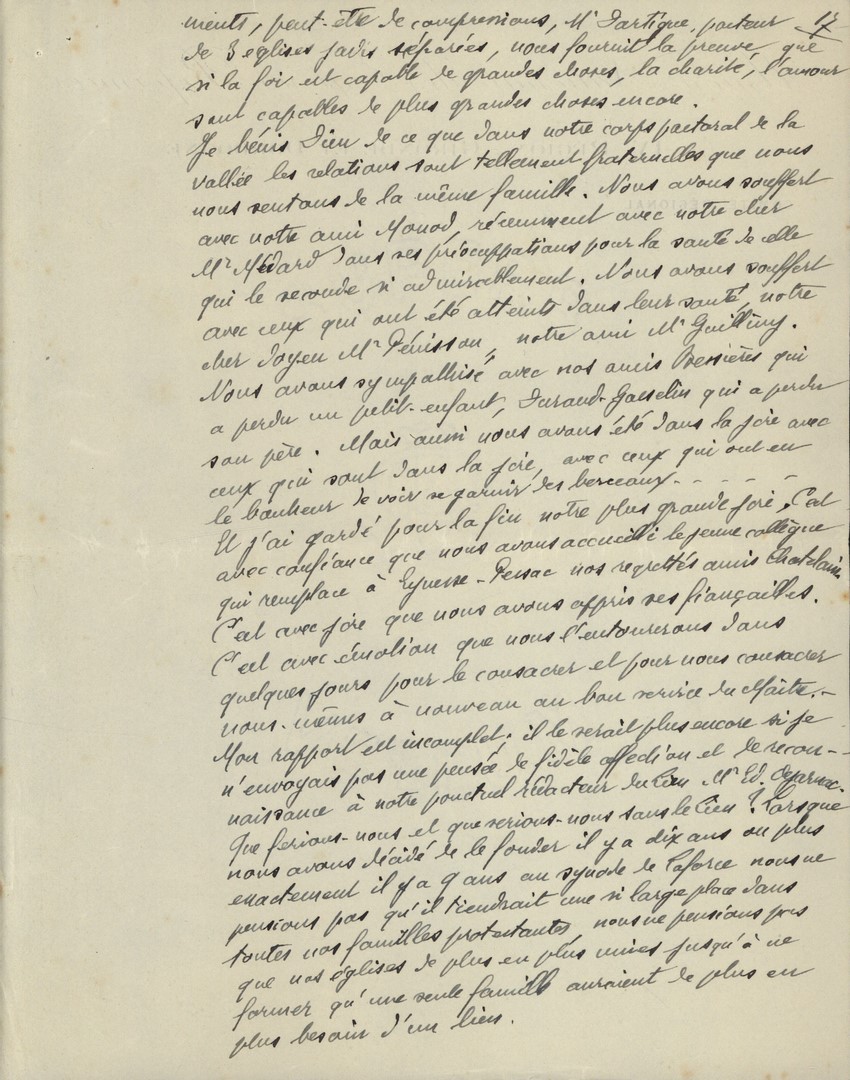 17
ments, peut-être de compressions, Mr Dartigue, pasteur
de 3 églises jadis séparées, nous fournit la preuve que
si la foi est capable de grandes choses, la charité, l'amour
sont capables de plus grandes choses encore.
Je bénis Dieu de ce que dans notre corps pastoral de la
vallée les relations sont tellement fraternelles que nous
nous sentons de la même famille. Nous avons souffert
avec notre ami Monod, récemment avec notre cher
Mr Médard dans ses préoccupations pour la santé de celle
qui le seconde si admirablement. Nous avons souffert
avec ceux qui ont été atteints dans leur santé, notre
cher doyen Mr Périsson, notre ami Mr
Nous avons sympathisé avec nos amis Bessières qui
a perdu un petit-enfant, Durand-Gasselin qui a perdu
son père. Mais aussi nous avons été dans la joie avec
ceux qui sont dans la joie, avec ceux qui ont eu
le bonheur de voir se garnir des berceaux - - - - -
Et j'ai gardé pour la fin notre plus grande joie, C'est
avec confiance que nous avons accueilli le jeune collègue
qui remplace à Eynesse-Pessac nos regrettés amis Chatelain.
C'est avec joie que nous avons appris ses fiançailles.
C'est avec émotion que nous l'entourerons dans
quelques jours pour le consacrer et pour nous consacrer
nous-mêmes à nouveau au bon service du Maître.-
Mon rapport est incomplet; il le serait plus encore si je
n'envoyais pas une pensée de fidèle affection et de recon-
naissance à notre ponctuel rédacteur du Lien Mr Ed.
Que ferions-nous et que serions-nous sans le Lien ? Lorsque
nous avons décidé de le fonder il y a dix ans ou plus
exactement il y a 9 ans au synode de Laforce nous ne
pensions pas qu'il tiendrait une si large place dans
toutes nos familles protestantes, nous ne pensions pas
que nos églises de plus en plus unies jusqu'à ne
former qu'une seule famille auraient de plus en
plus besoin d'un lien.